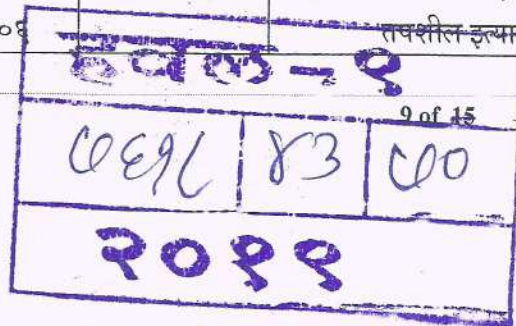 ०६ तपशील इत्या
हवल-१
9 of 15
७६१८ ४३ ७०
२०११